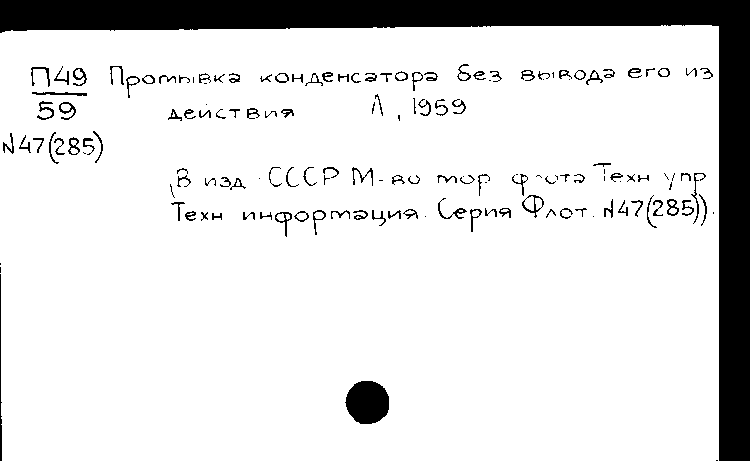 П49 Промывка конденсатора без вывода его из
59 действия Л, 1959
N47(285)
(В изд. СССР М-во мор флота Техн упр
Техн информация. Серия Флот. N47(285)).